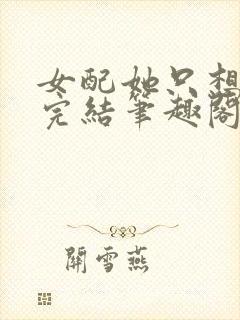 女配她只想
完結筆趣閣
關雪燕